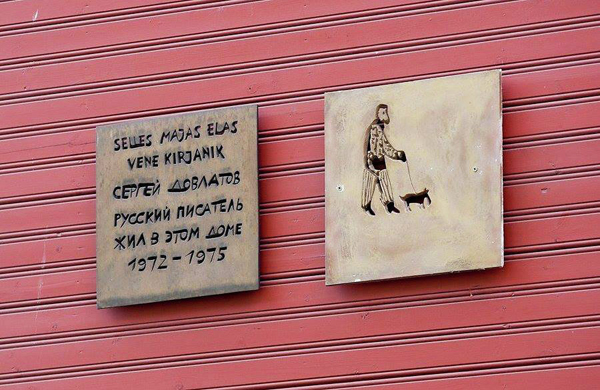 SELLES MAJAS ELAS
VENE KIRJANIK
СЕРГЕЙ ДОВЛАТОВ
РУССКИЙ ПИСАТЕЛЬ
ЖИЛ В ЭТОМ ДОМЕ
1972 - 1975